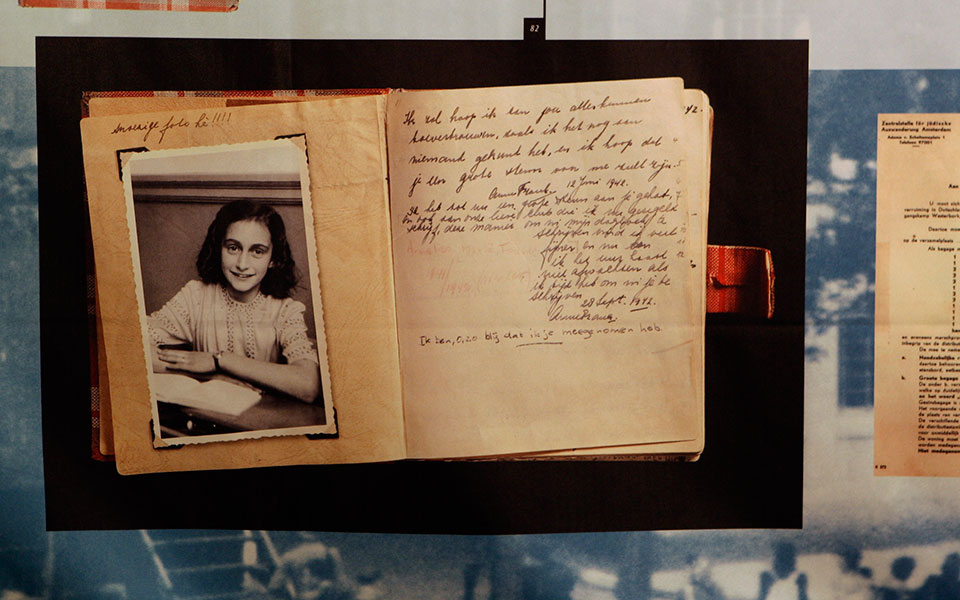 82
snoezige foto hè!!!!
Ik zal hoop ik aan jou alles kunnen
toevertrouwen, zoals ik het nog aan
niemand gekund heb, en ik hoop dat
je een grote steun voor me zult zijn.
Anne Frank. 12 Juni 1942.
Ik heb tot nu een grote steun aan je gehad,
en ook aan onze lieve club die ik nu geregeld
schrijf, deze manier om in mijn dagboek te
schrijven vind ik veel
fijner en nu kan
ik het uur haast
niet afwachten als
ik tijd heb om in je te
schrijven.
28 Sept. 1942.
Anne Frank.
Ik ben, o, zo blij dat ik je meegenomen heb.
42.
Zentralstelle für jüdische
Auswanderung Amsterdam
Adama v. Scheltemaplein 1
Telefoon 97001
Aan
U moet zich
verruiming in Duitschla
gangskamp Westerbork,
Daartoe moet
op de verzamelplaats
Als bagage m
a.
Handbagage
b.
Groote bagage